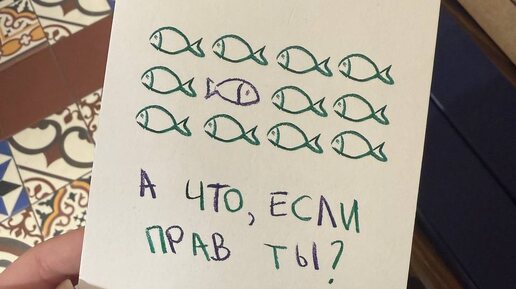 А ЧТО, ЕСЛИ
ПРАВ ТЫ?